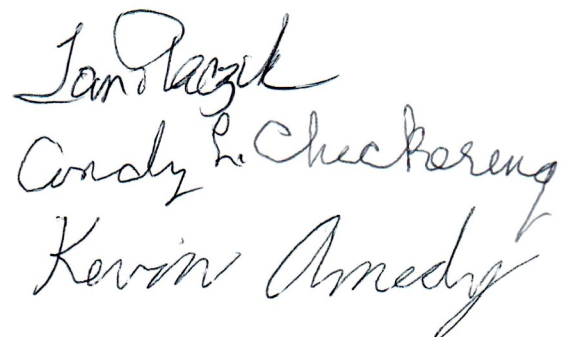 Jan Placzik
Candy L. Checkoreng
Kevin Amedy